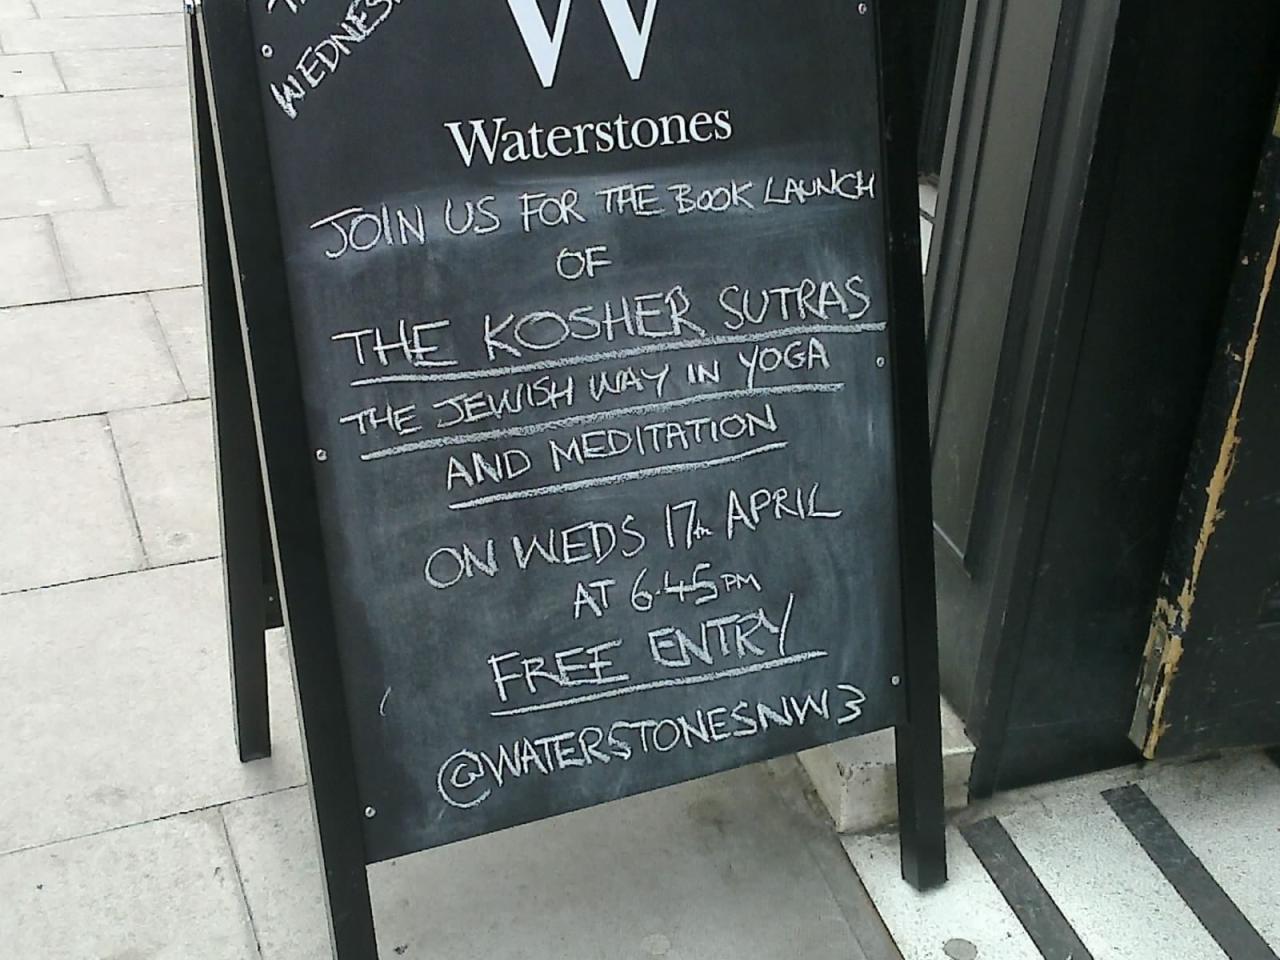 WEDNES
W
Waterstones
JOIN US FOR THE BOOK LAUNCH
OF
THE KOSHER SUTRAS
THE JEWISH WAY IN YOGA
AND MEDITATION
ON WEDS 17th APRIL
AT 6.45PM
FREE ENTRY
@WATERSTONESNW3